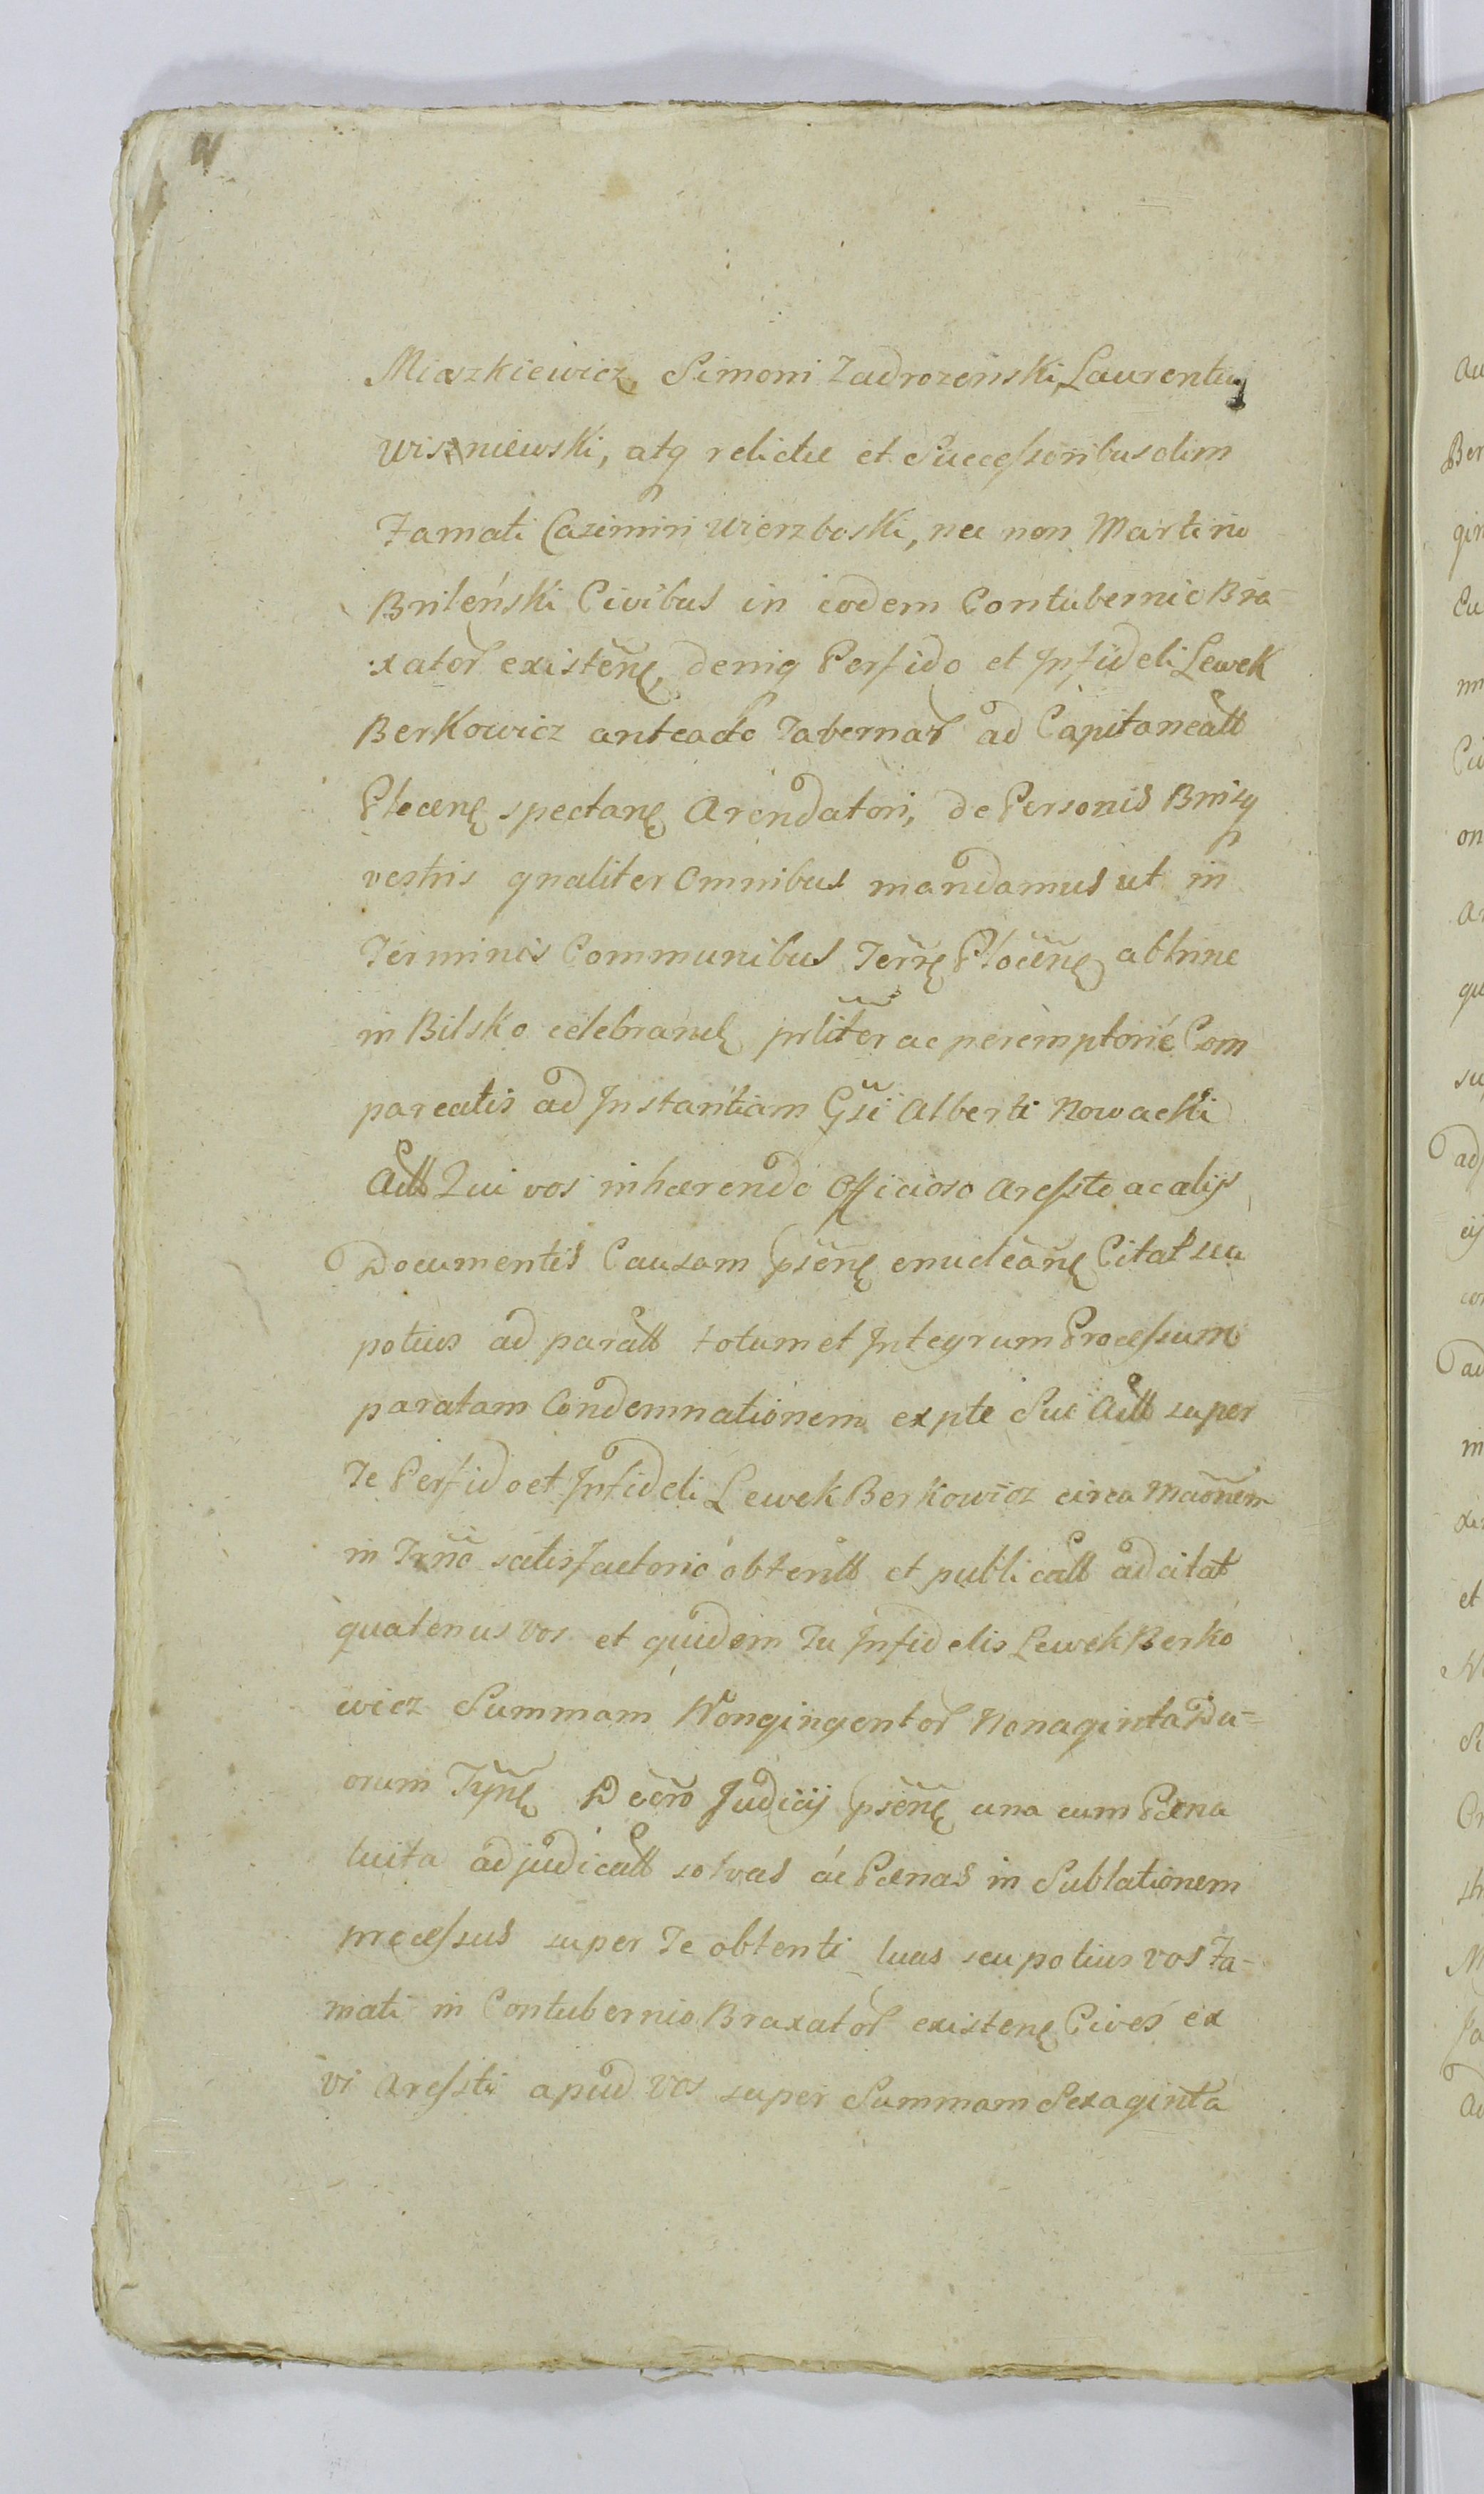 Miaszkiewicz, Simoni Zadrozenski, Laurentij
Wiszniewski, atq relictæ et Successoribus olim
Famati Casimiri Wierzboski, nec non Martino
Brileński Civibus in eodem Contubernio Bra-
xator existeñ, deniq Perfido et Infideli Lewek
Berkowicz anteacto Tabernar ad Capitaneatt
Plocenę spectanę Arendatori, de Personis Bnisq
vestris gnaliter omnibus mandamus ut in
Terminis Communibus Terrę Plocenę abhinc
in Bilsko celebrandę prliter ac peremptorié Com
pareatis ad Instantiam Gsi Alberti Nowacki
Actt Qui vos inhærendo Officioso Aressto ac alijs
Documentis Causam psenę enucleanę Citat seu
potius ad paratt totum et Integrum Processum
paratam Condemnationem ex pte Sui Actt super
Te Perfido et Infideli Lewek Berkowicz circa Maõnem
in Trno satisfactorio obtentt et publicatt adcitat
quatenus vos et quidem Tu Infidelis Lewek Berko
wicz Summam Nongingentor Nonaginta Du=
orum Tynę Decro Judicij psenę una cum Pæna
luita adjudicatt solvas ac Pænas in Sublationem
processus super Te obtenti luas seu potius vos Fa-
mati in Contubernio Braxator existenę Cives ex
vi Aressti apud vos super Summam Sexaginta